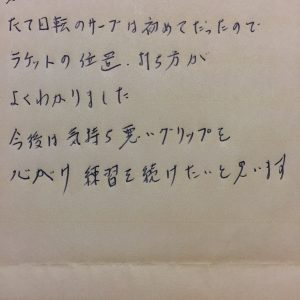 たて回転のサーブは初めてだったので
ラケットの位置、打ち方が
よくわかりました
今後は気持ち悪いグリップを
心がけ練習を続けたいと思います